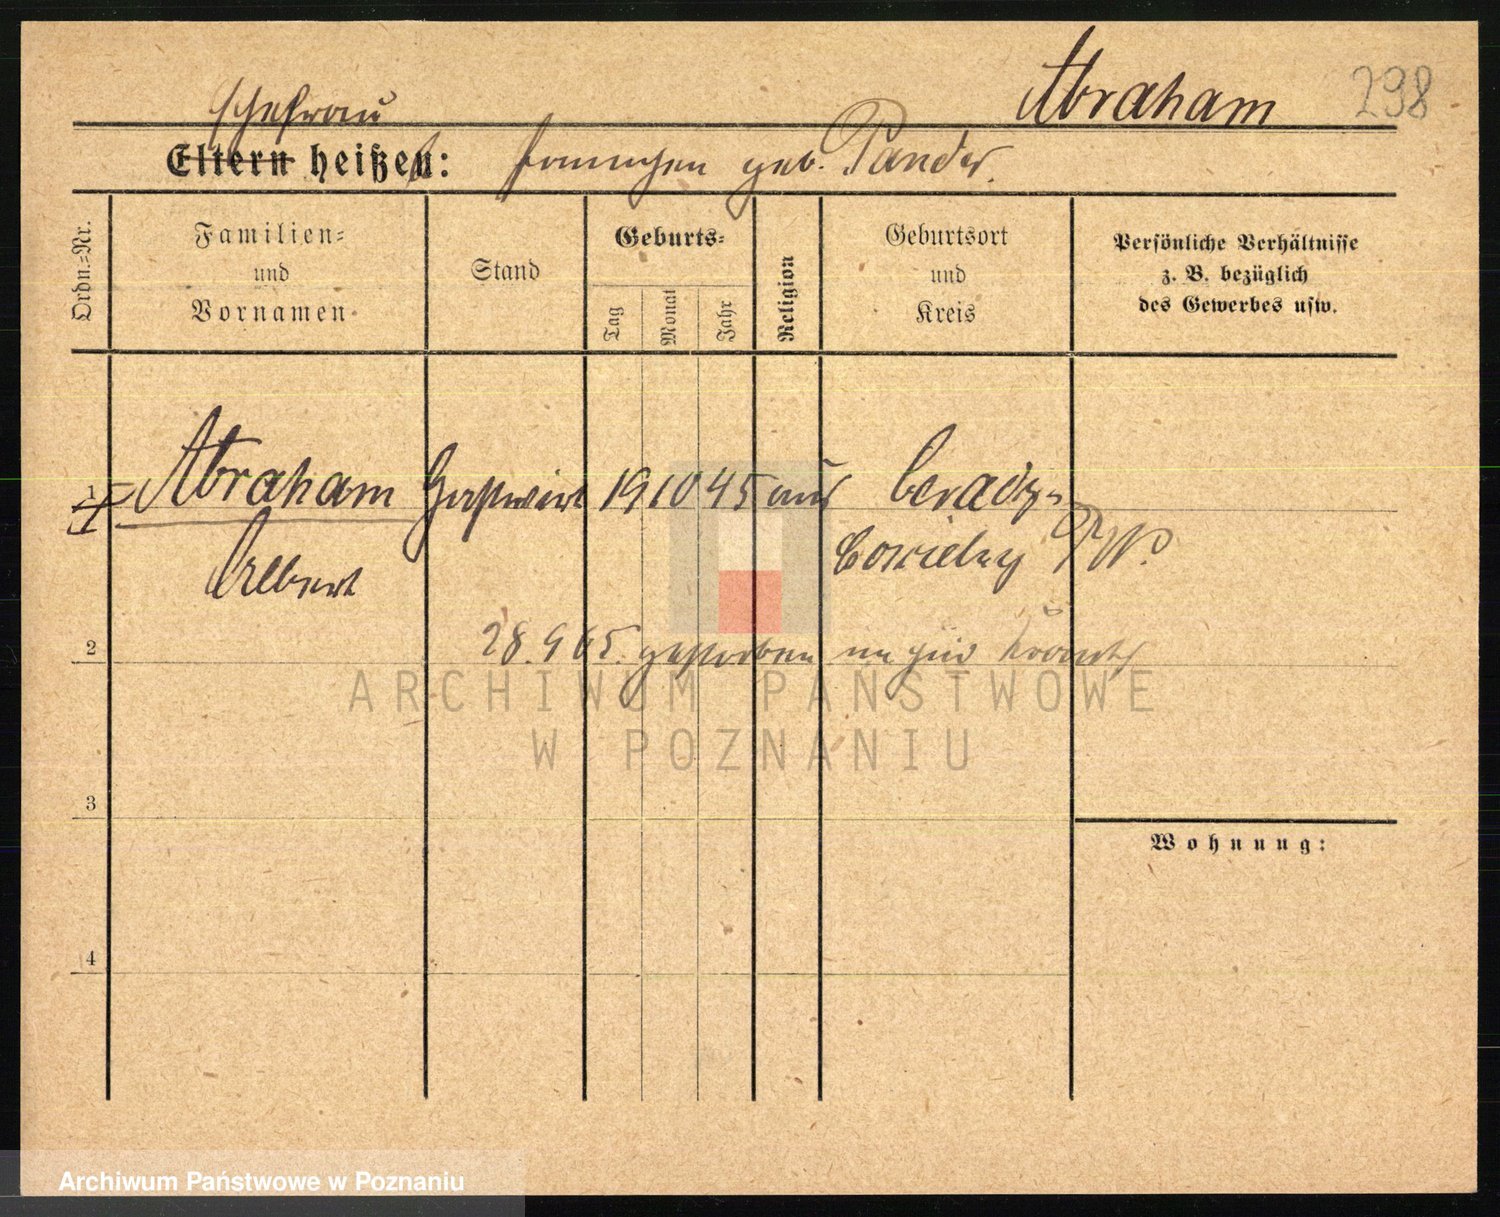 Abraham 298
Ehefrau
Eltern heißen: geb. Pander.
Ordn.-Nr.
Familien-
und
Vornamen
Stand
Geburts-
Tag
Monat
Jahr
Religion
Geburtsort
und
Kreis
Persönliche Verhältnisse
z. B. bezüglich
des Gewerbes usw.
1 Abraham Gastwirt 19 10 45
Albert
2 28. 9 65. gestorben im
ARCHIWUM PAŃSTWOWE
W POZNANIU
3
Wohnung:
4
Archiwum Państwowe w Poznaniu